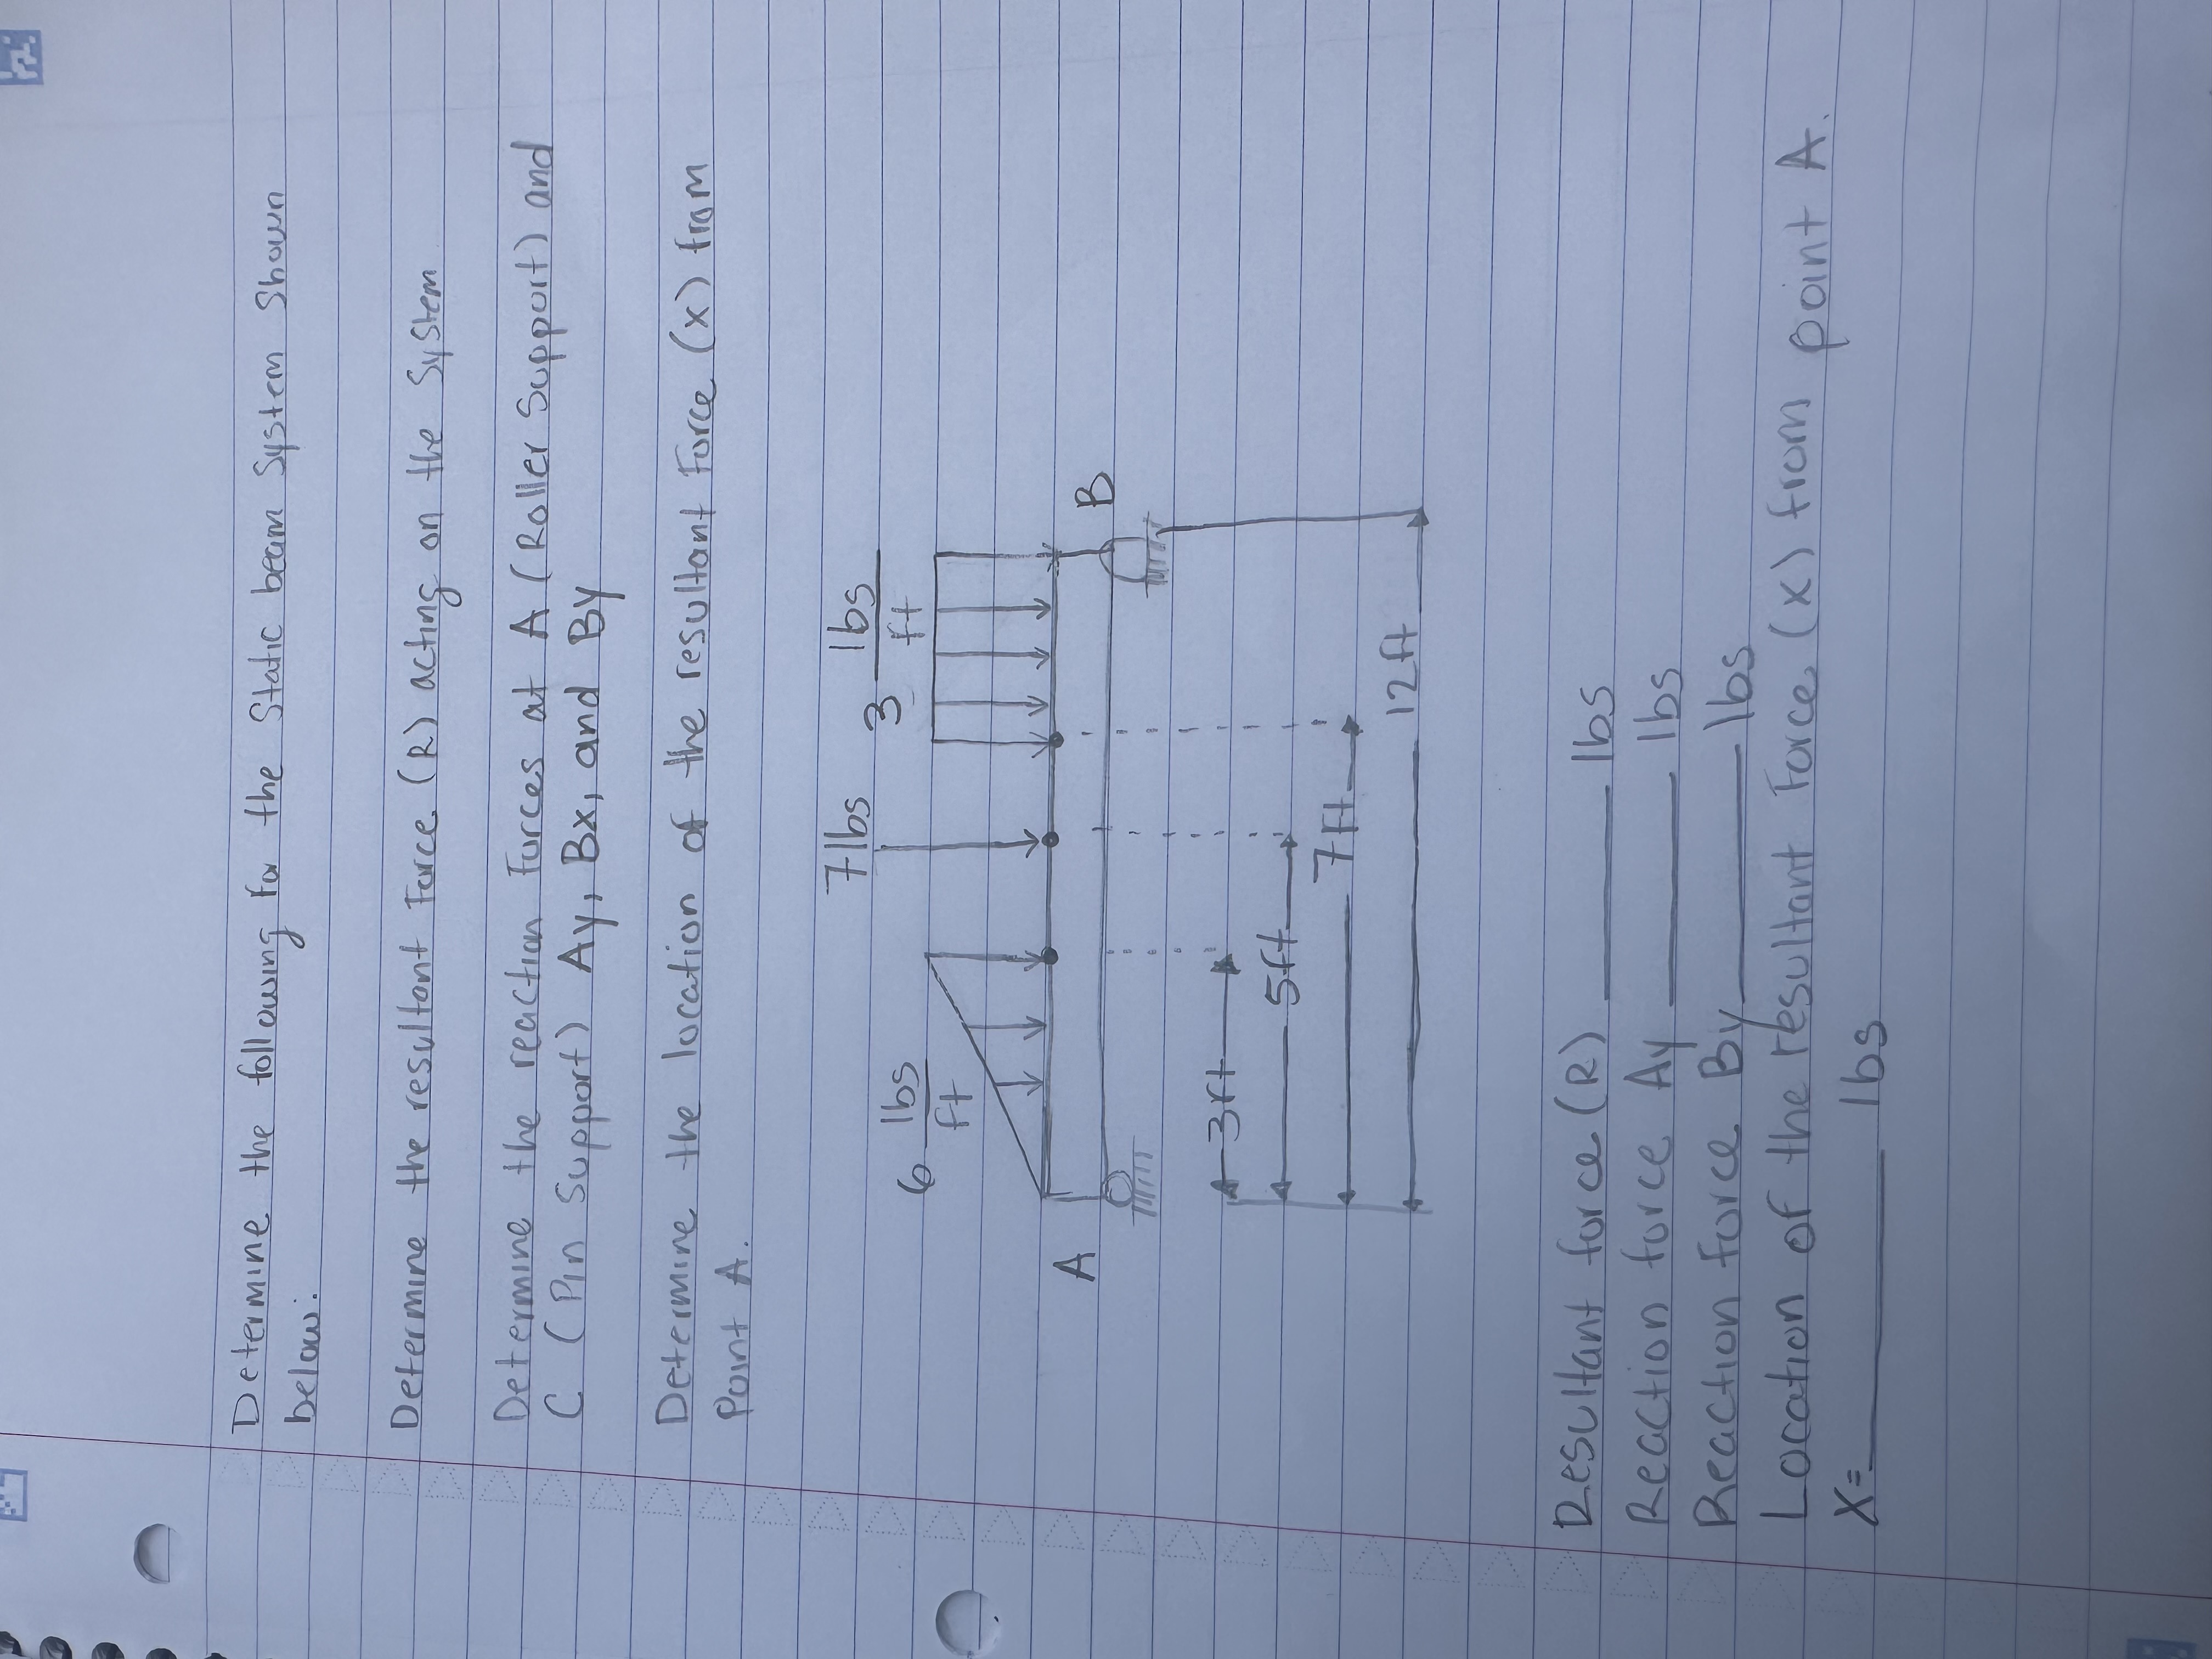 Determine the following for the Static beam System Shown
below:
Determine the resultant Force (R) acting on the System
Determine the reaction Forces at A (Roller Support) and
C (Pin Support) Ay, Bx, and By
Determine the location of the resultant Force (x) from
Point A.
6 lbs/ft
7 lbs
3 lbs/ft
A
B
3ft
5ft
7ft
12ft
Resultant force (R) ______ lbs
Reaction force Ay ______ lbs
Reaction Force By ______ lbs
Location of the resultant Force (x) from point A.
X= ______ lbs